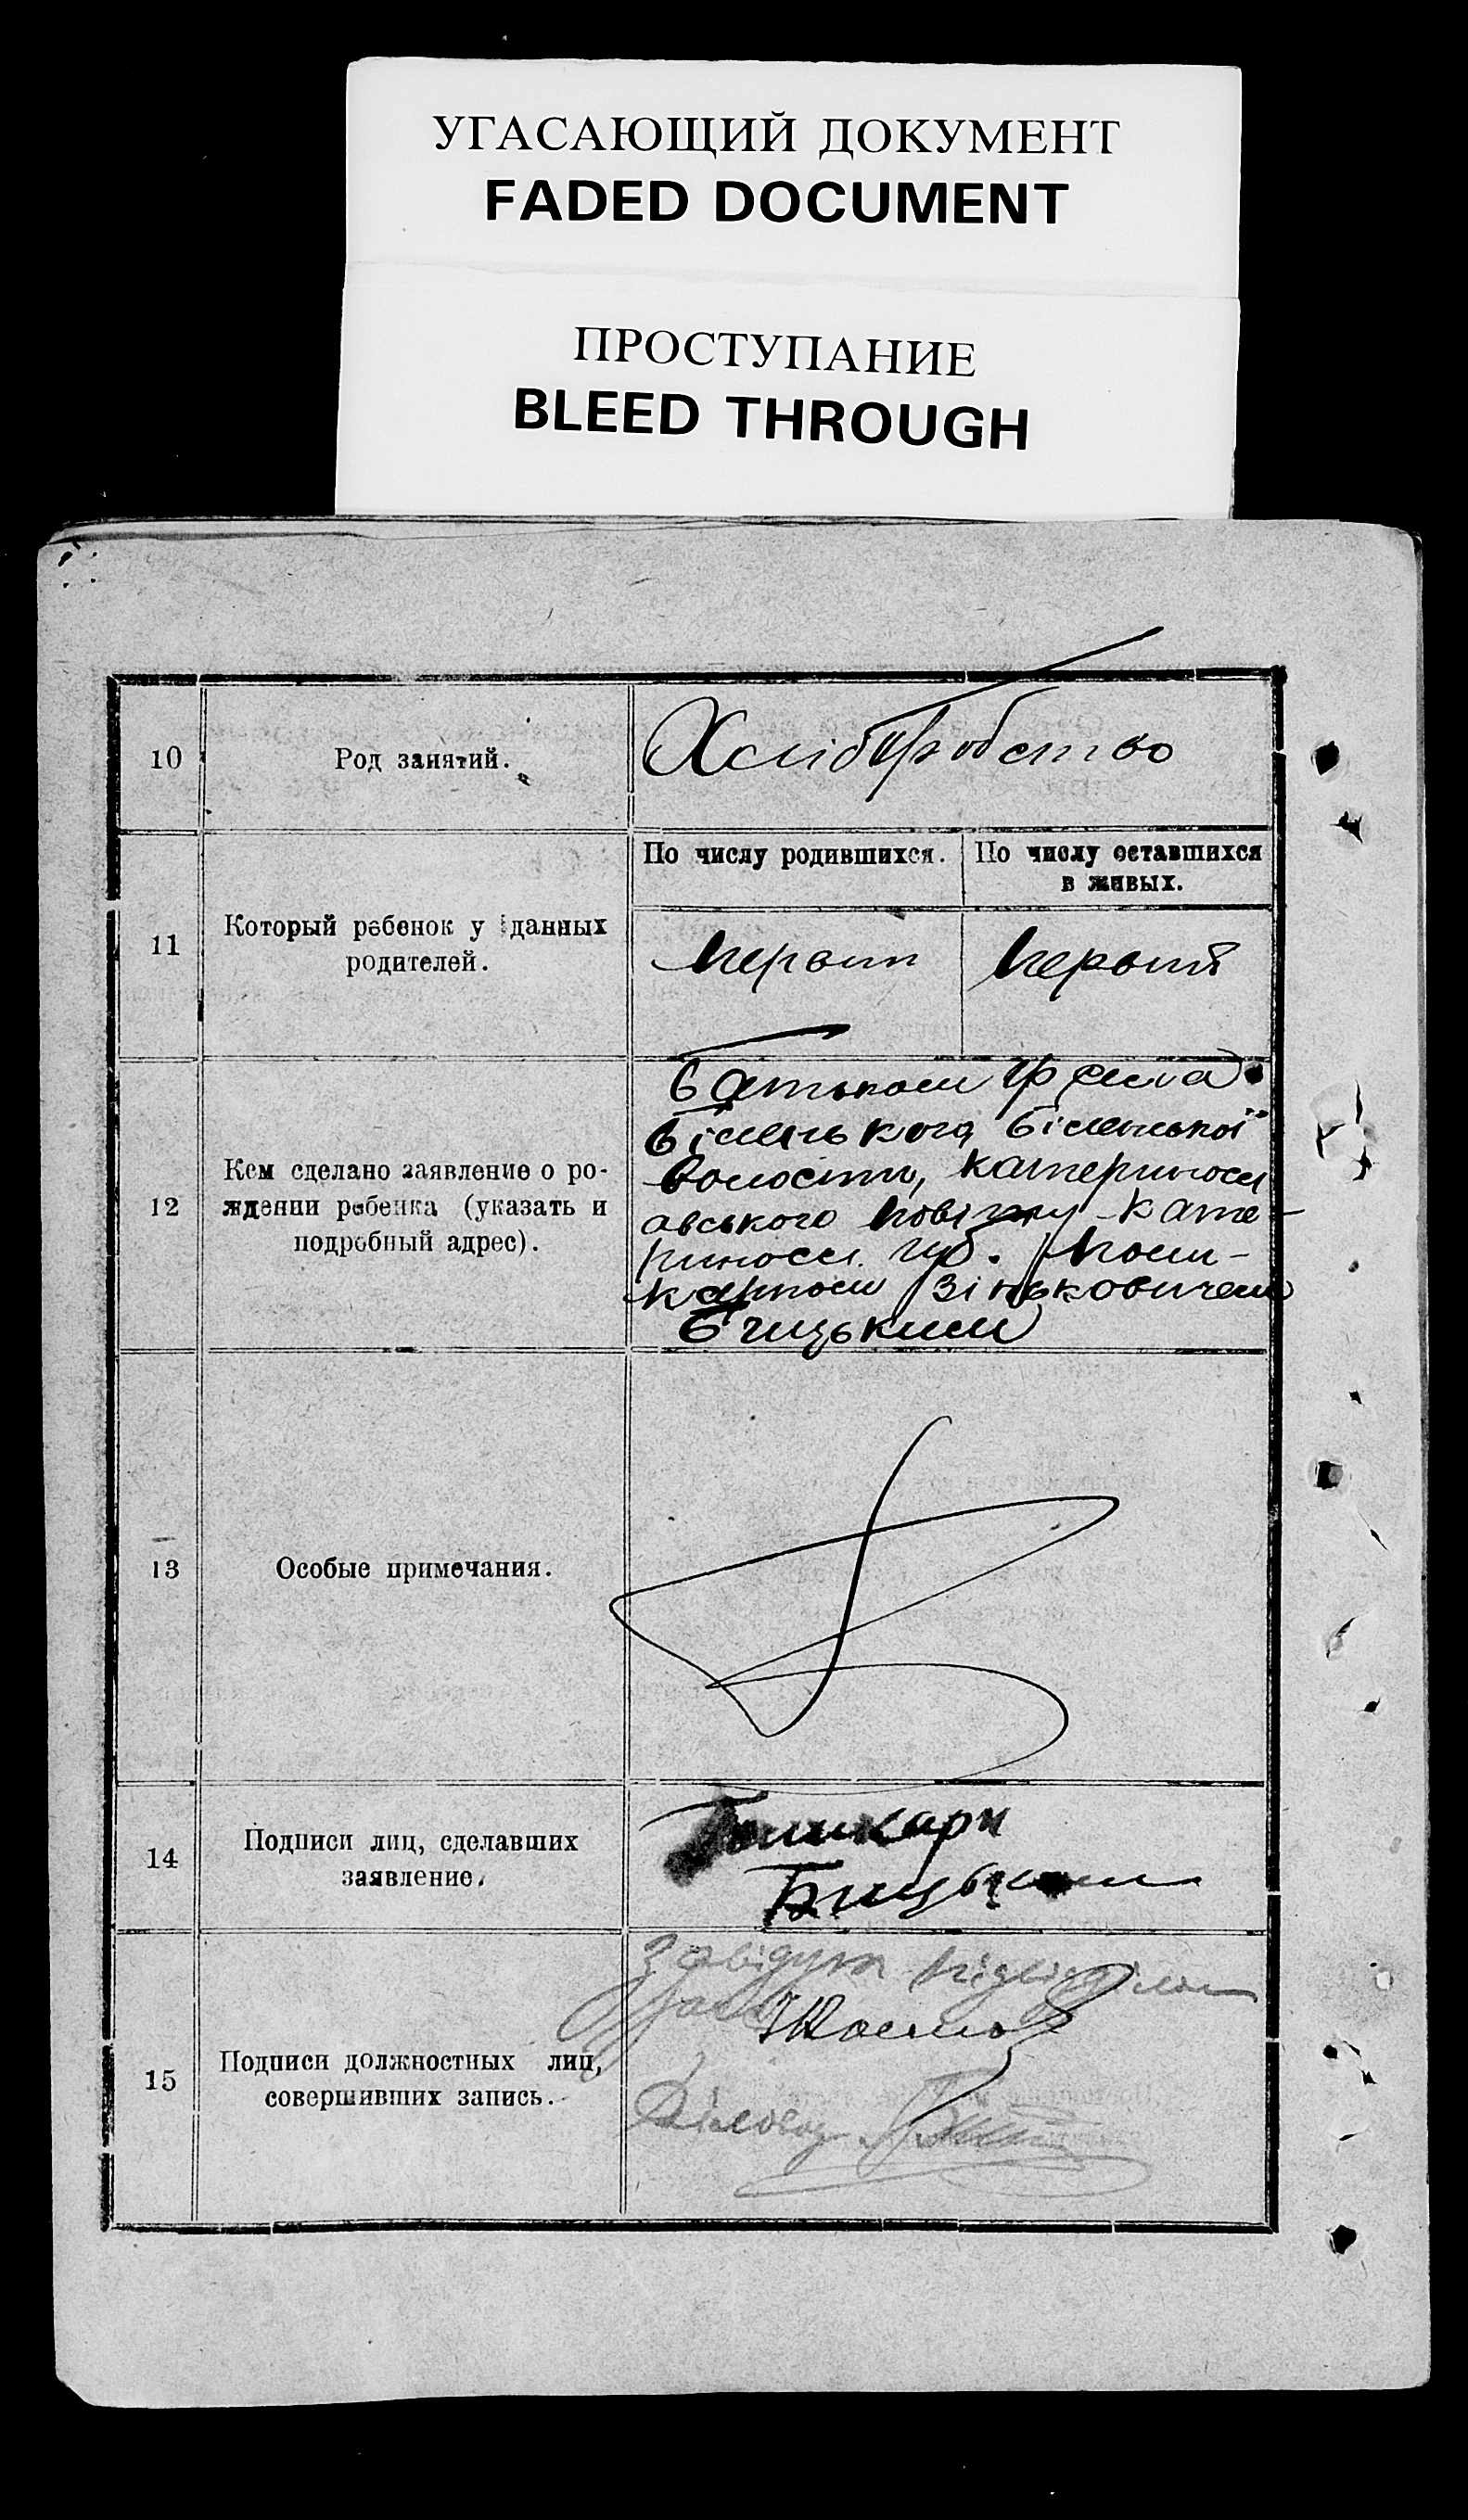 УГАСАЮЩИЙ ДОКУМЕНТ
FADED DOCUMENT
ПРОСТУПАНИЕ
BLEED THROUGH
10
Род занятий.
Хліборобство
11
Который ребенок у данных
родителей.
По числу родившихся.
По числу оставшихся
в живых.
первый
первый
12
Кем сделано заявление о ро-
ждении ребенка (указать и
подробный адрес).
Батьком гр села
Біленького, Біленької
волости, Катериносл
авського повіту Кате-
риносл. губ. Поли-
карпом Зіньковичем
13
Особые примечания.
14
Подписи лиц, сделавших
заявление.
15
Подписи должностных лиц,
совершивших запись.
Завідуюч підвідділом
Діловод